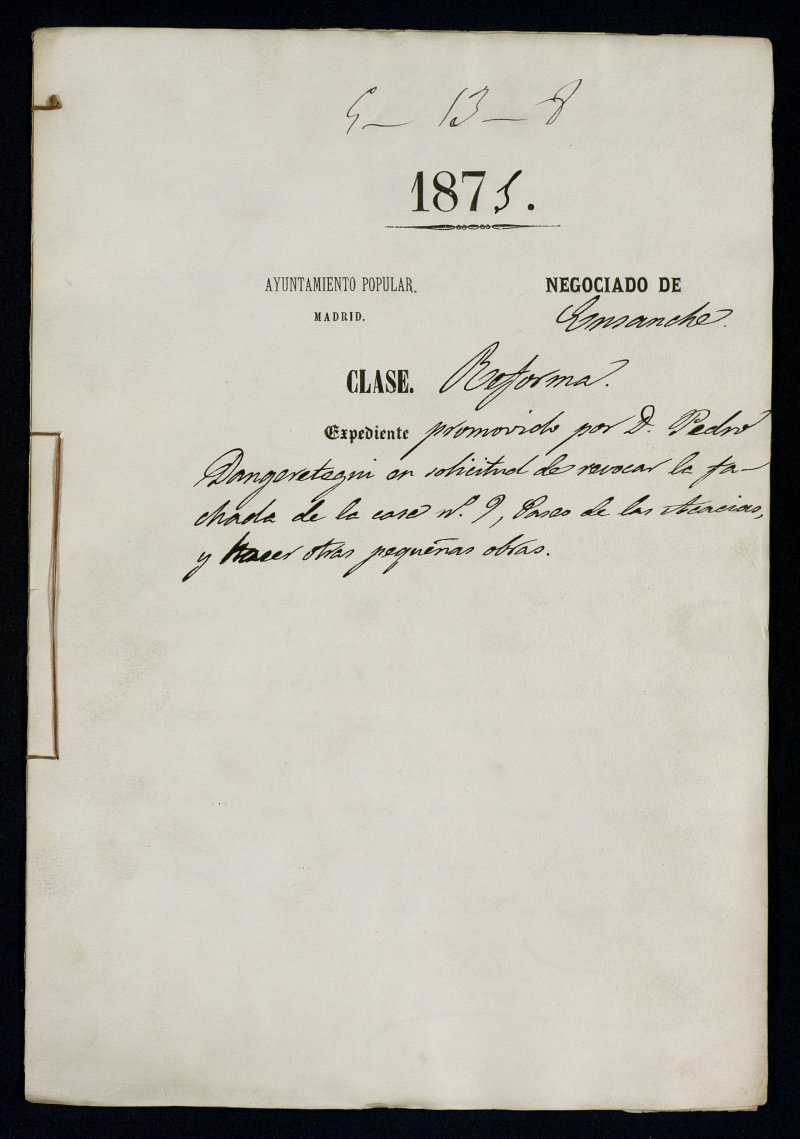 5 - 13 - 8
1875.
AYUNTAMIENTO POPULAR.
MADRID.
NEGOCIADO DE
Ensanche.
CLASE. Reforma.
Expediente promovido por D. Pedro
Dangeretegui en solicitud de revocar la fa-
chada de la casa n.º 9, Paseo de las Acacias,
y hacer otras pequeñas obras.